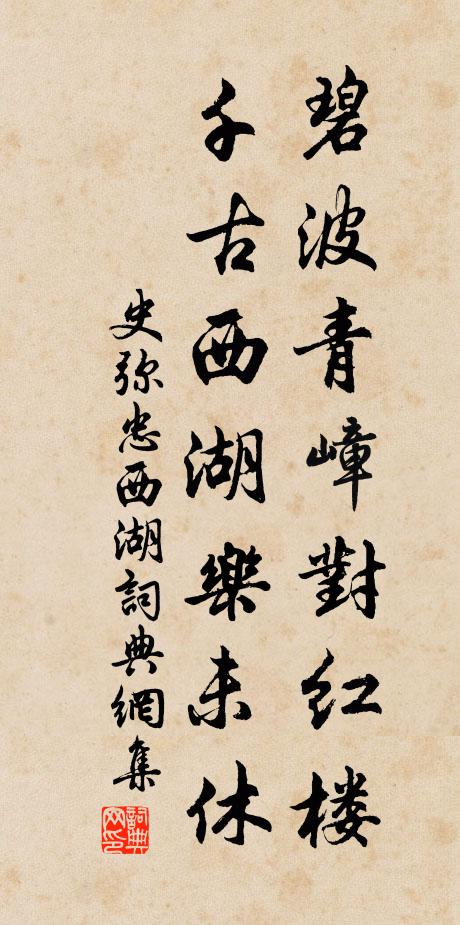 碧波青嶂對红楼
千古西湖樂未休
史弥忠西湖詞典網集
詞典网印